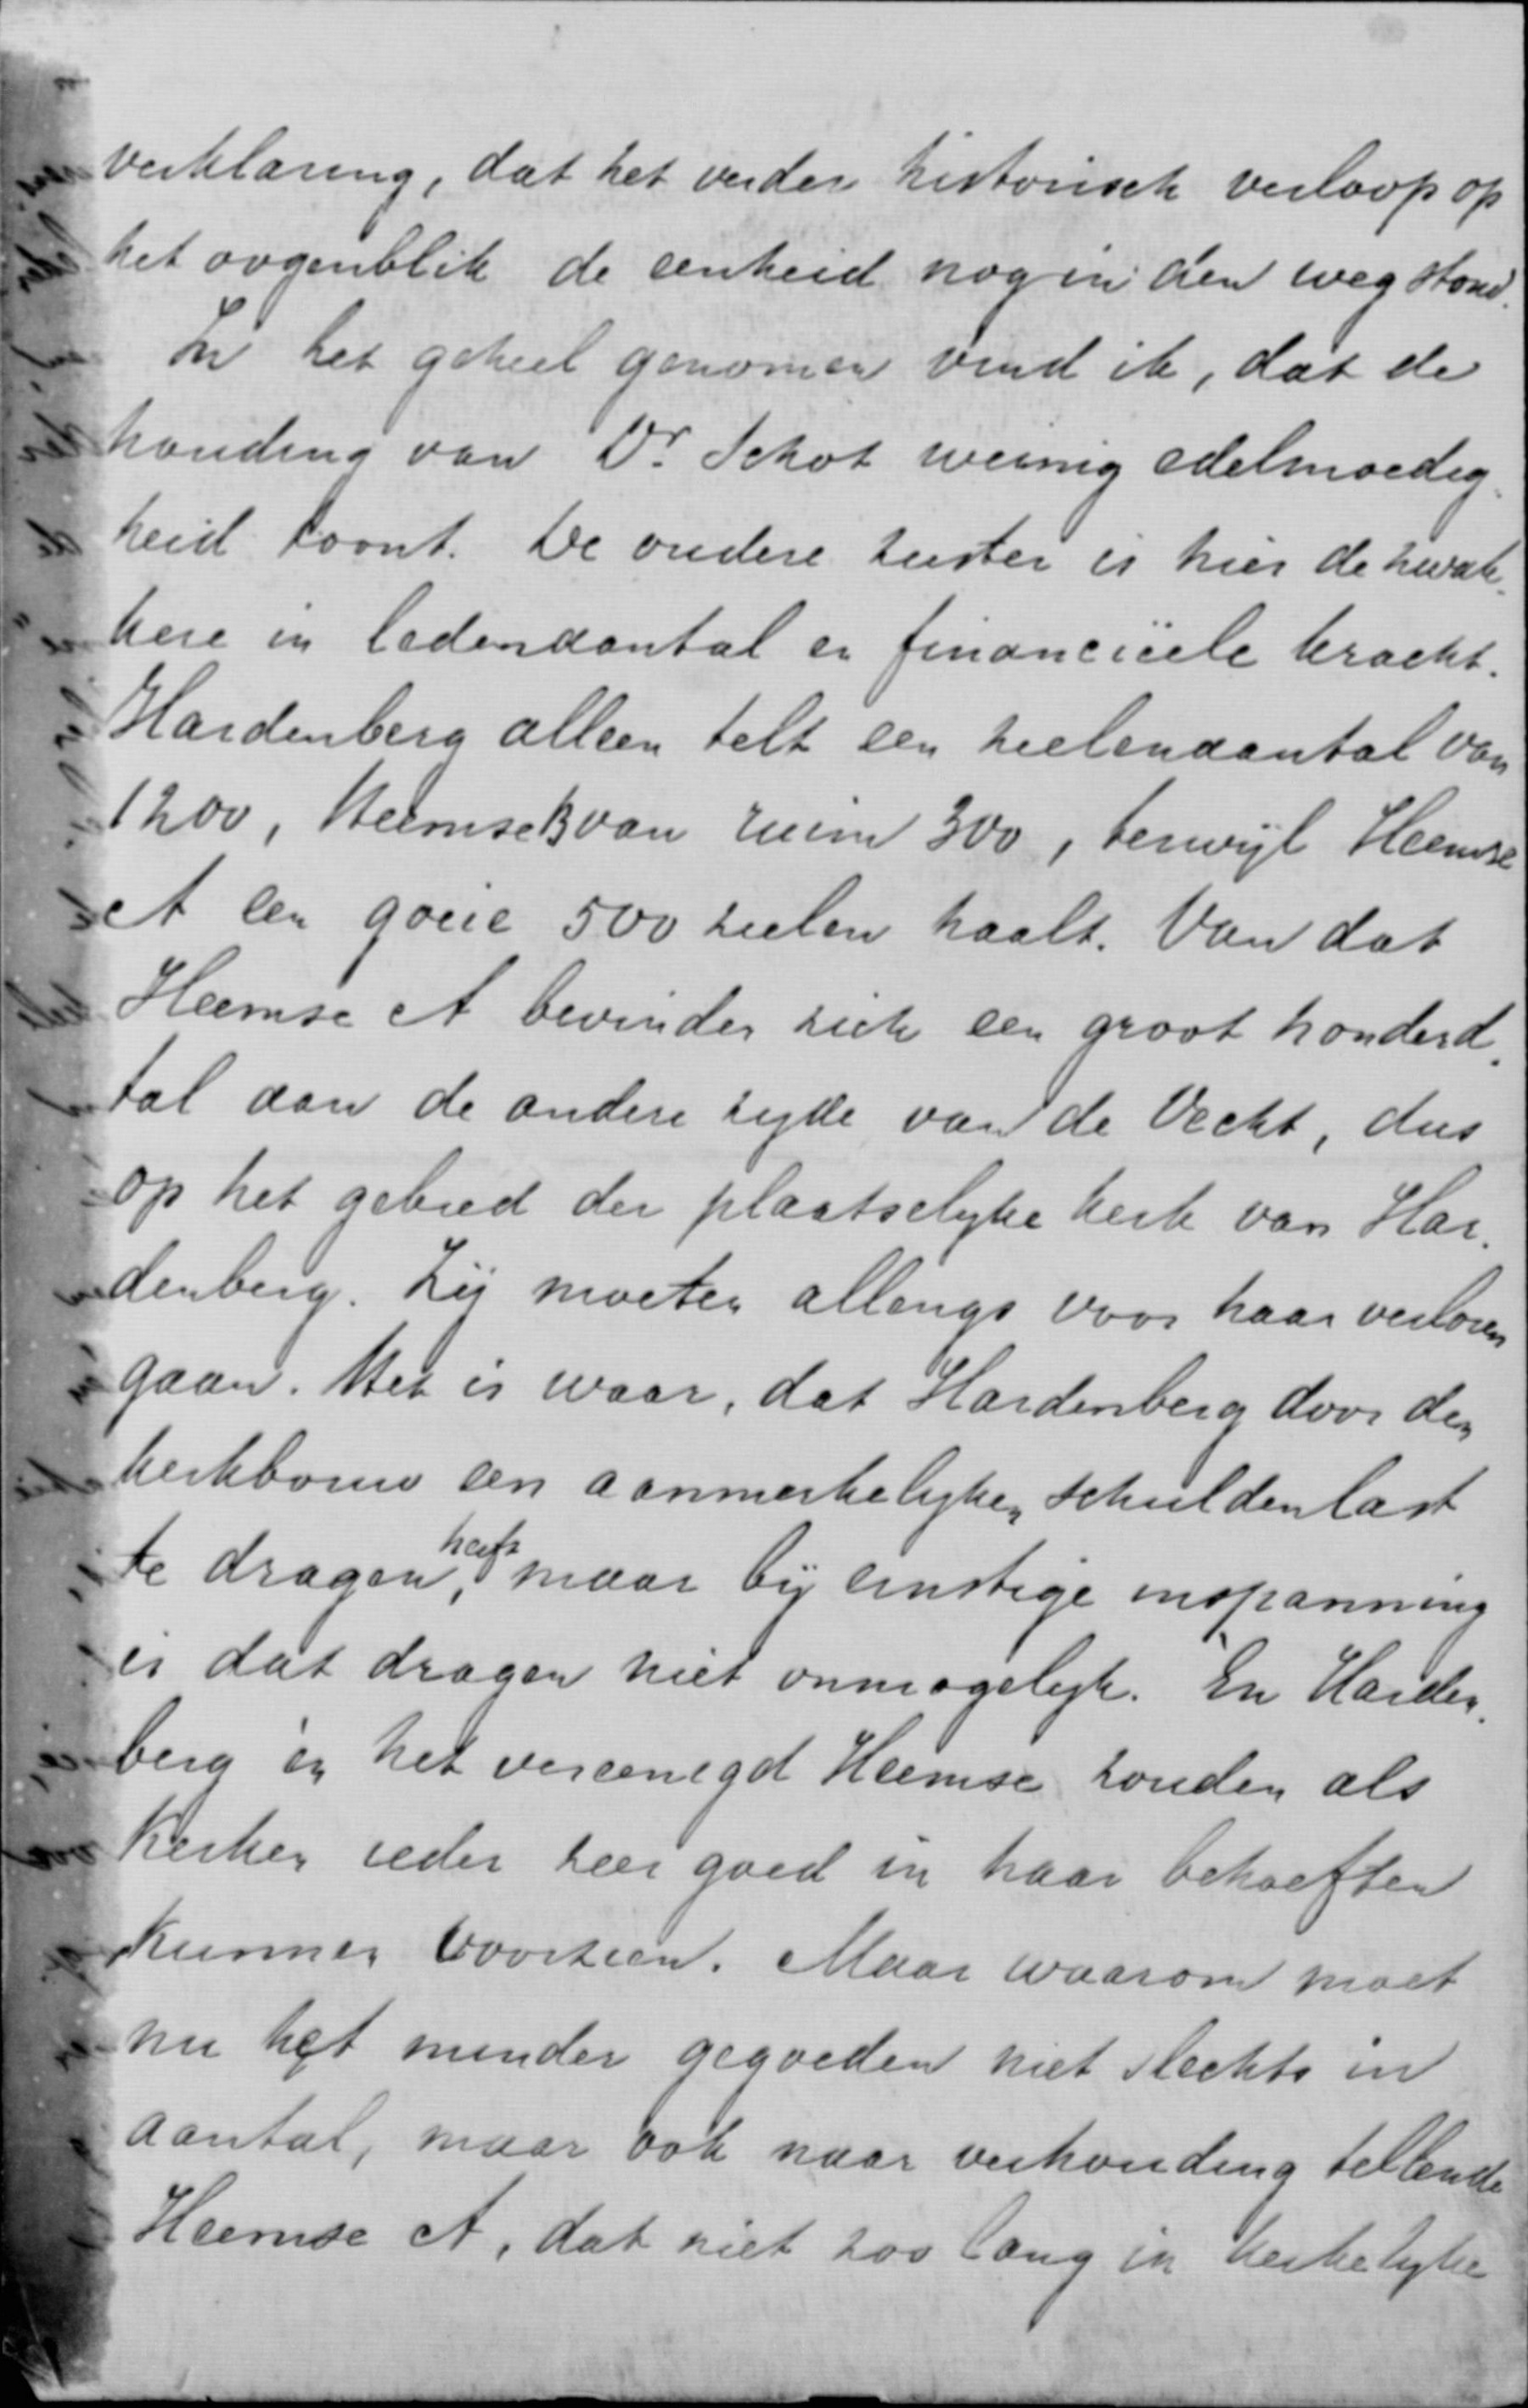 verklaring, dat het verder historisch verloop op
het oogenblik de eenheid nog in den weg stond.
In het geheel genomen vind ik, dat de
houding van Dr. Schot weinig edelmoedig-
heid toont. De oudere zuster is hier de zwak-
kere in ledenaantal en financiëele kracht.
Hardenberg alleen telt een zielenaantal van
1200, Heemse B van ruim 300, terwijl Heemse
A een goeie 500 zielen haalt. Van dat
Heemse A bevinden zich een groot honderd-
tal aan de andere zijde van de Vecht, dus
op het gebied der plaatselijke kerk van Har-
denberg. Zij moeten allengs voor haar verloren
gaan. Het is waar, dat Hardenberg door den
kerkbouw een aanmerkelijken schuldenlast
te dragen heeft, maar bij ernstige inspanning
is dat dragen niet onmogelijk. En Harden-
berg èn het vereenigd Heemse zouden als
Kerken ieder zeer goed in haar behoeften
kunnen voorzien. Maar waarom moet
nu het minder gegoeden niet slechts in
aantal, maar ook naar verhouding tellende
Heemse A, dat niet zoo lang in kerkelijke